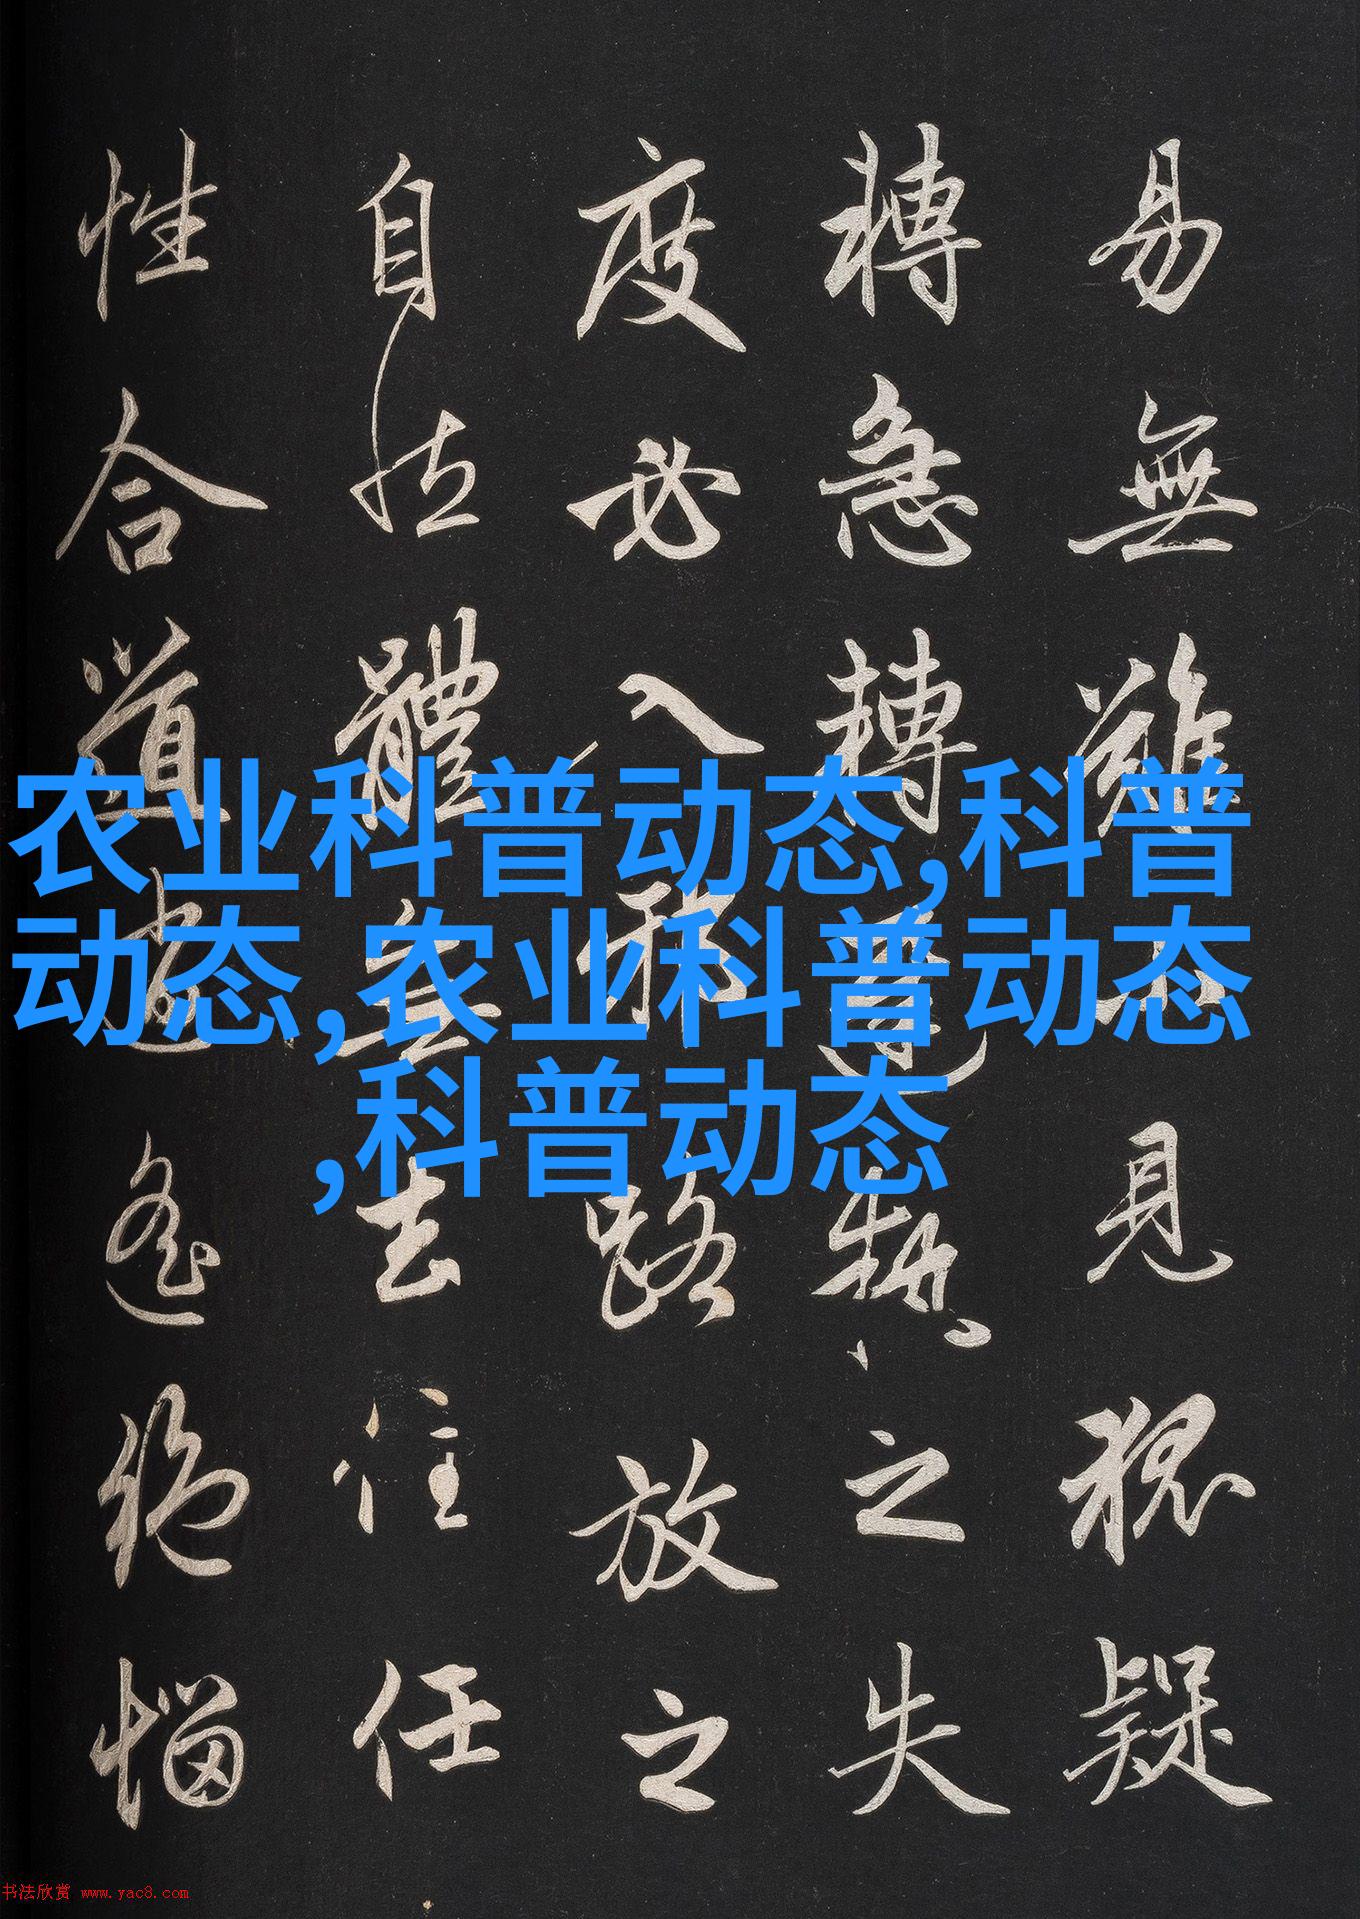 易無難小見狐疑
轉急轉遲執之失
度必入邪路放之
自然體無去住任
性合道逍遙絕惱
农业科普动态,科普
动态,农业科普动态
,科普动态
书法欣赏 www.yac8.com